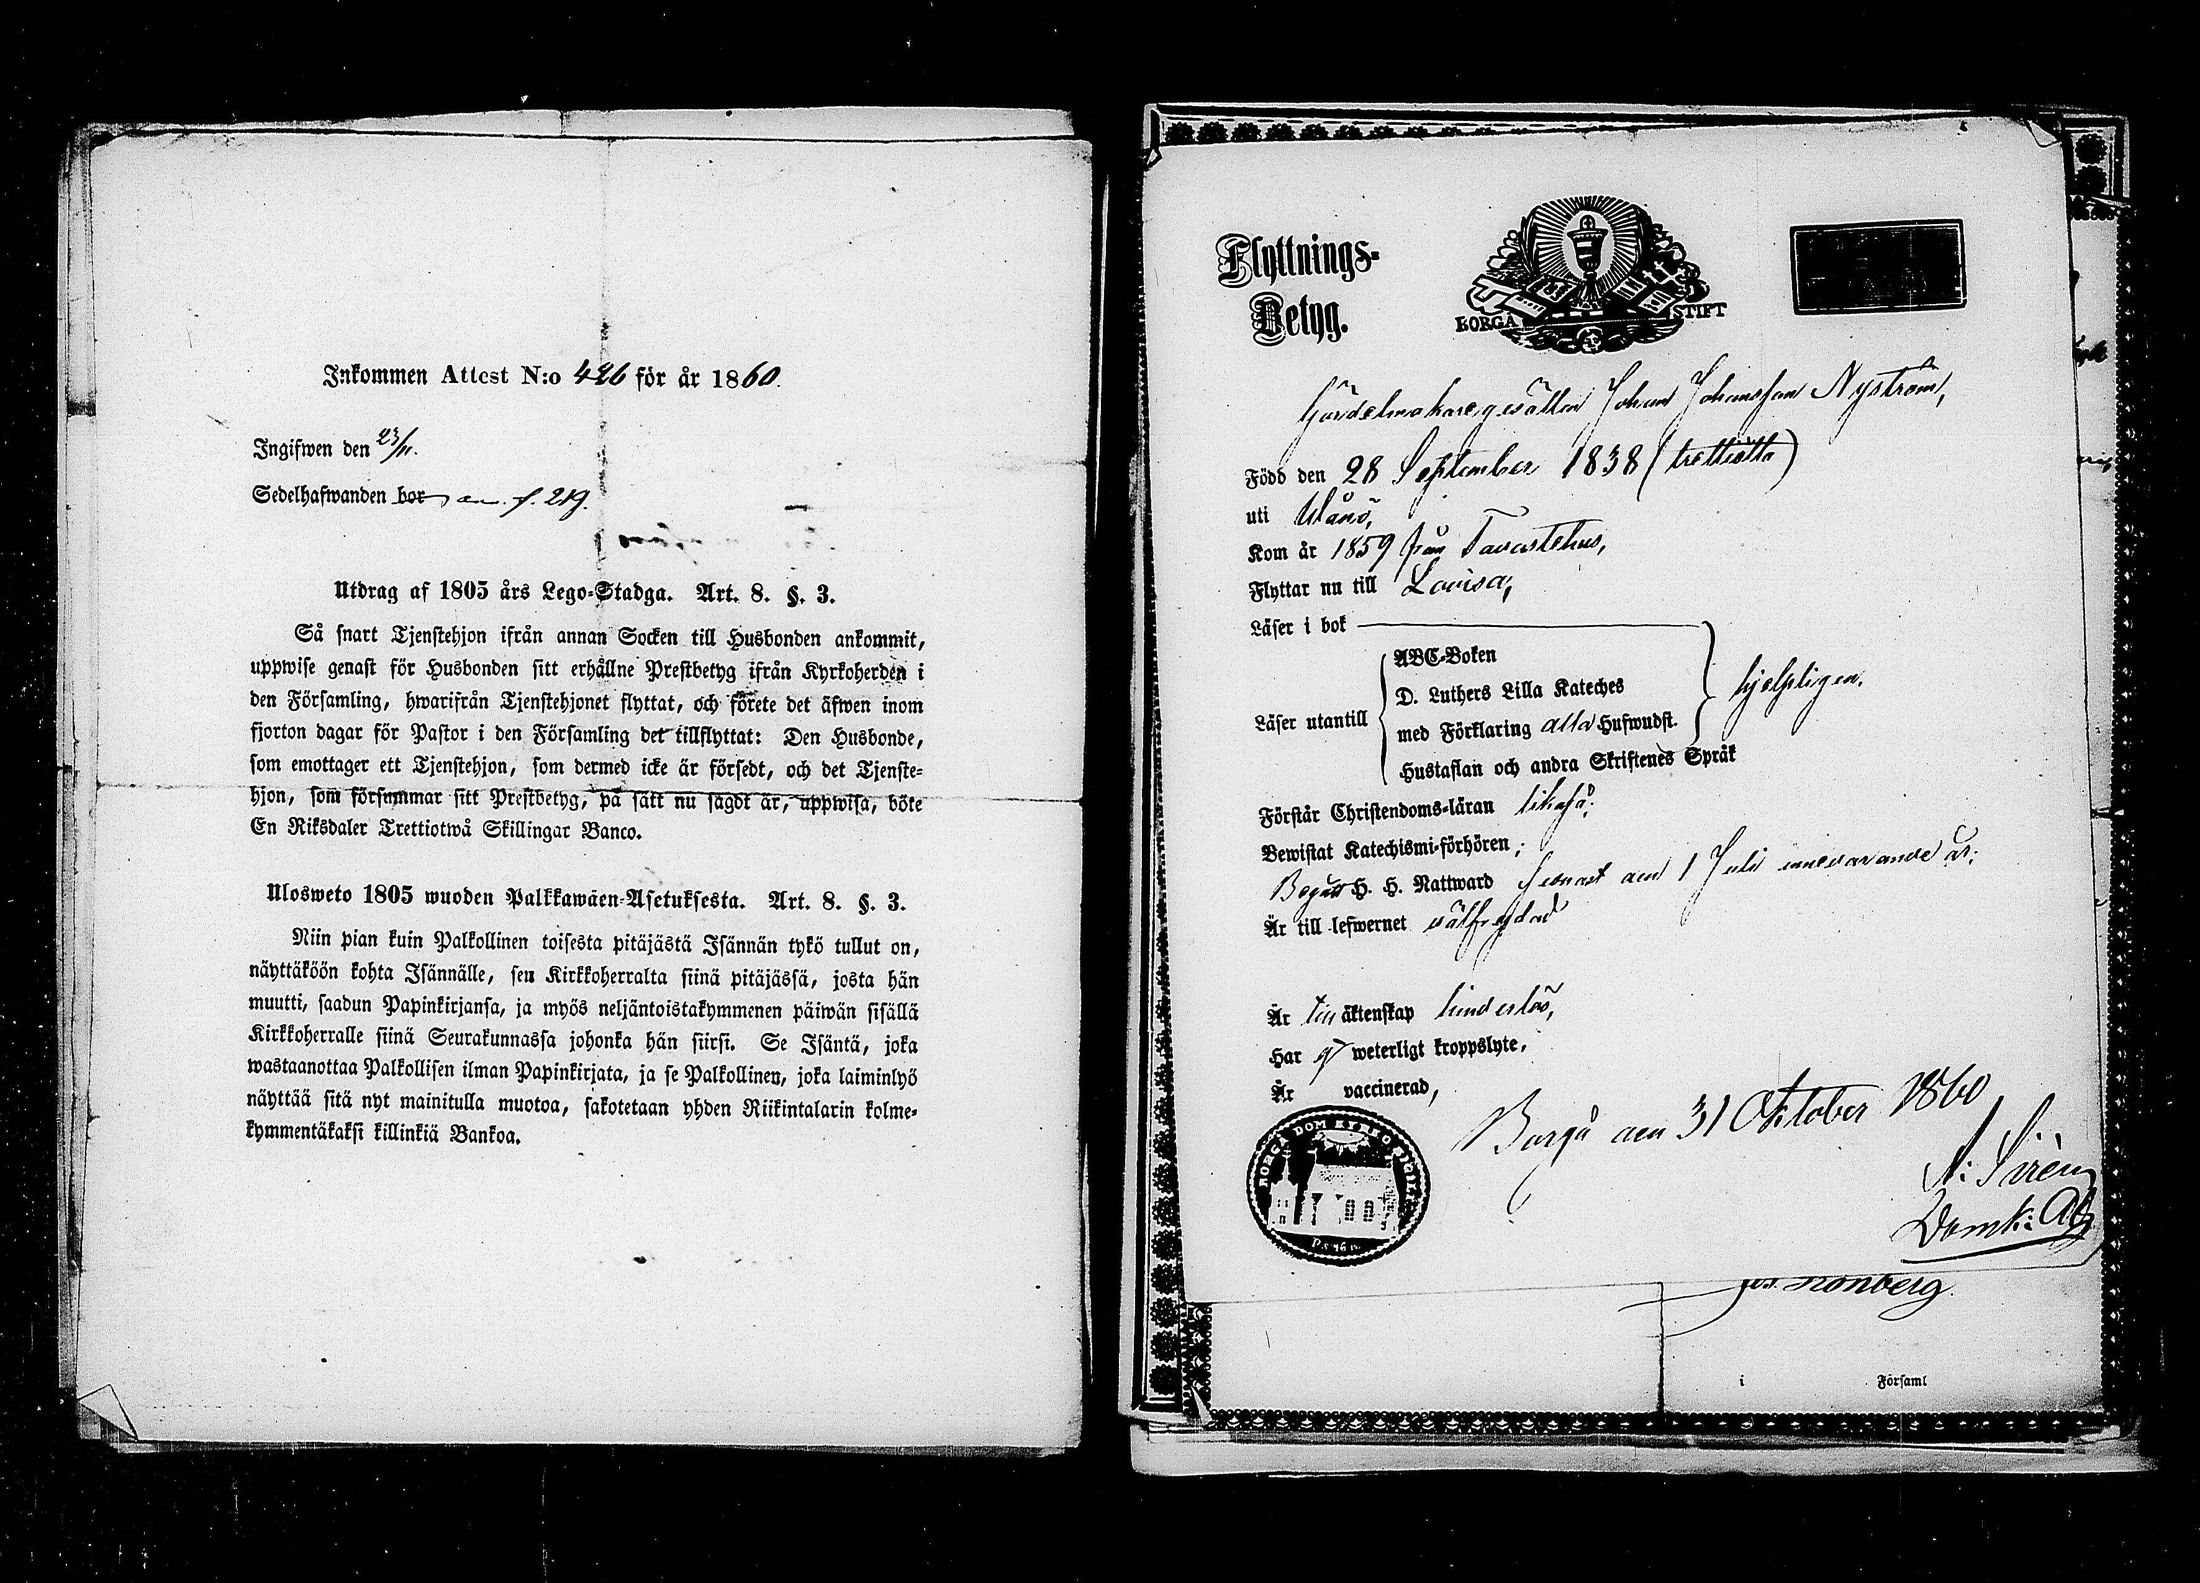 Inkommen Attest N:o 426 för år 1860.
Ingifwen den 23/11.
Sedelhafwanden bor an. f. 219.
Utdrag af 1805 års Lego-Stadga. Art. 8. §. 3.
Så snart Tjenstehjon ifrån annan Socken till Husbonden ankommit,
uppwise genast för Husbonden sitt erhållne Prestbetyg ifrån Kyrkoherden i
den Församling, hwarifrån Tjenstehjonet flyttat, och förete det äfwen inom
fjorton dagar för Pastor i den Församling det tillflyttat: Den Husbonde,
som emottager ett Tjenstehjon, som dermed icke är försedt, och det Tjenste-
hjon, som försummar sitt Prestbetyg, på sätt nu sagdt är, uppwisa, böte
En Riksdaler Trettiotwå Skillingar Banco.
Ulosweto 1805 wuoden Palkkawäen-Asetuksesta. Art. 8. §. 3.
Niin pian kuin Palkollinen toisesta pitäjästä Isännän tykö tullut on,
näyttäköön kohta Isännälle, sen Kirkkoherralta siinä pitäjässä, josta hän
muutti, saadun Papinkirjansa, ja myös neljäntoistakymmenen päiwän sisällä
Kirkkoherralle siinä Seurakunnassa johonka hän siirsi. Se Isäntä, joka
wastaanottaa Palkollisen ilman Papinkirjata, ja se Palkollinen, joka laiminlyö
näyttää sitä nyt mainitulla muotoa, sakotetaan yhden Riikintalarin kolme-
kymmentäkaksi killinkiä Bankoa.
Flyttnings-
Betyg.
BORGÅ STIFT
Gördelmakaregesällen Johan Johansson Nyström,
Född den 28 September 1838 (trettiotta)
uti Wånö,
Kom år 1859 från Tavastehus,
Flyttar nu till Lovisa,
Läser i bok
ABC-Boken
D. Luthers Lilla Kateches
Läser utantill med Förklaring alla Hufwudst. hjelpligen.
Hustaflan och andra Skriftenes Språk
Förstår Christendoms-läran likaså;
Bewistat Katechismi-förhören;
Begått H. H. Nattward senast den 1 Juli innevarande år;
Är till lefwernet välfrejdad
Är till äktenskap hinderlös,
Har ej weterligt kroppslyte,
Är vaccinerad,
Borgå den 31 Oktober 1860
BORGÅ DOMKYRKO
A: Sirén
Domk: Adj
Kronberg.
i Församl